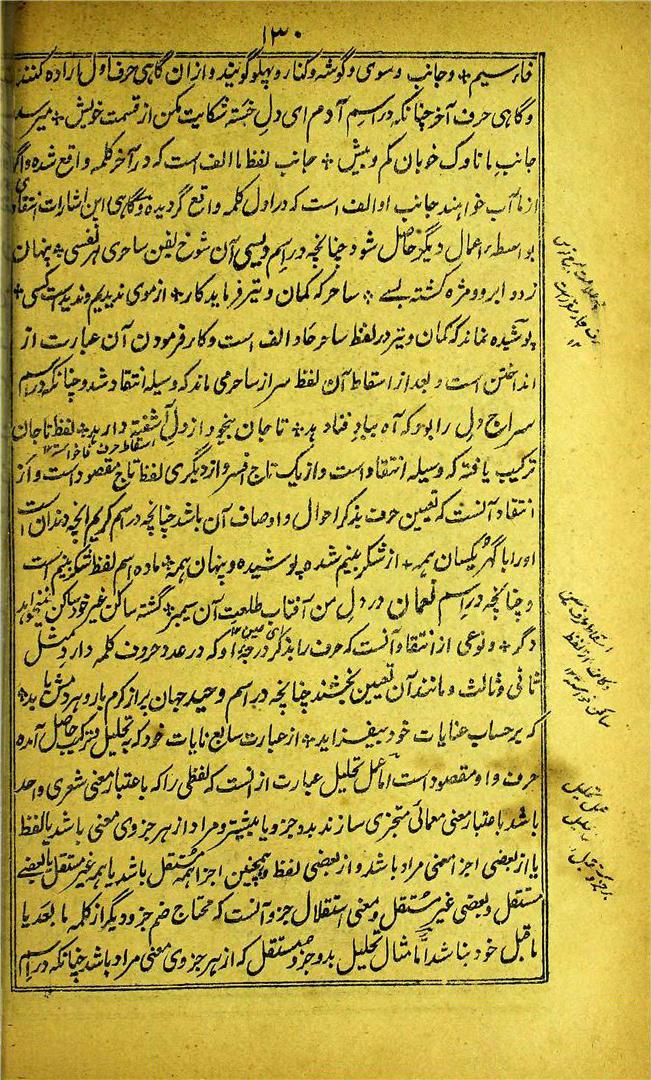 ۱۳۰
فارسیم + و جانب و سوی و گوشه و کنار و پهلو گویند و ازان گاهی حرف اول اراده کنند
و گاهی حرف آخر چنانکه در اسم آدم ای دل خسته شکایت مکن از قسمت خویش + میرسد
جانب ما ناوک خوبان کم و بیش + جانب لفظ ما الف است که در آخر کلمه واقع شده و اگر
از ماآب خواهند جانب او الف است که در اول کلمه واقع گردیده و گاهی این اشارات انتقادی
بواسطه اعمال دیگر حاصل شود چنانچه در اسم ویسی آن شوخ بفن ساحری هر نفسی + پنهان
زدو ابرو و مژه کشته بسے + ساحر که کمان و تیر فرماید کار + از موی ندیدیم و ندیدست کسی +
پوشیده نماند که کمان و تیر در لفظ ساحر حاد الف است و کار فرمودن آن عبارت از
انداختن است و بعد از اسقاط آن لفظ سر از ساحر می ماند که وسیله انتقاد شد و چنانکه در اسم
سراج دل را بود که آه بباد فنا دهد + تا جان بیخود از دل آشفته دارهد + لفظ تا جان
اسقاط حرف
ترکیب یافته که وسیله انتقاد است و از یک تاج افسر و از دیگری لفظ تاج مقصود است و از
انتقاد آنست که تعیین حرف بذکر احوال و اوصاف آن باشد چنانچه در اسم کریم آنچه دندان است
اورا با گهر یکسان همه + از شکر بینم شده پوشیده و پنهان همه + ماده اسم لفظ شکر بینم است
و چنانچه در اسم نعمان در دل من آفتاب طلعت آن سیمبر + گشته ساکن غیر خود ساکن نمیخواهد
دگر + و نوعی از انتقاد آنست که حرف را بذکر در جه او که در عدد حروف کلمه دارد مثل
ثانی و ثالث و مانند آن تعیین بخشند چنانچه در اسم وحید جهان پر از کرم یار و هر دمش باید +
که بر حساب عنایات خود بیفزاید + از عبارت سابع نایات خود که به تحلیل و ترکیب حاصل آمده
حرف واو مقصود است اما عمل تحلیل عبارت از انست که لفظی را که باعتبار معنی شعری واحد
باشد باعتبار معنی معمائی متجزی سازند بدو جزو یا بیشتر و مراد از هر جزوی معنی باشد یا لفظ
یا از بعضی اجزا معنی مراد باشد و از بعضی لفظ و همچنین اجزا همه مستقل باشد یا همه غیر مستقل یا بعضے
مستقل و بعضی غیر مستقل و معنی استقلال جزو آنست که محتاج ضم جزو دیگر از کلمه ما بعد یا
ما قبل خود نباشد اما مثال تحلیل بدو جزو مستقل که از هر جزوی معنی مراد باشد چنانکه در اسم
عمل تحلیل